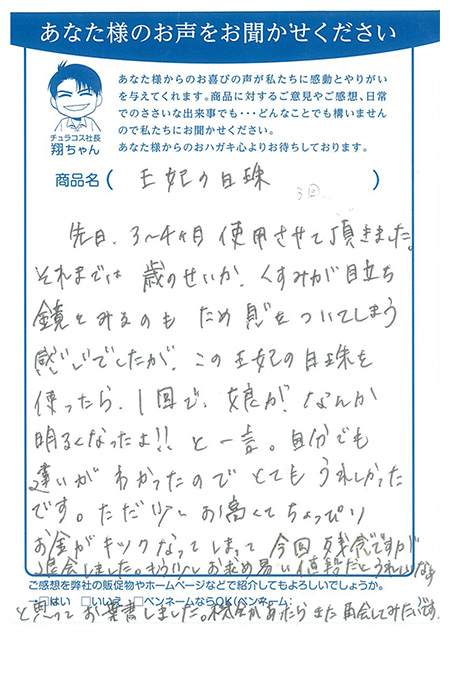 あなた様のお声をお聞かせください
あなた様からのお喜びの声が私たちに感動とやりがい
を与えてくれます。商品に対するご意見やご感想、日常
でのささいな出来事でも・・・どんなことでも構いません
ので私たちにお聞かせください。
あなた様からのおハガキ心よりお待ちしております。
チュラコス社長
翔ちゃん
商品名( 王妃の白珠 3回 )
先日、3〜4ヶ月使用させて頂きました。
それまでは歳のせいか、くすみが目立ち
鏡をみるのもため息をついてしまう
感じでしたが、この王妃の白珠を
使ったら、1回で、娘が、なんか
明るくなったよ!!と一言。自分でも
違いがわかったのでとてもうれしかった
です。ただ少しお高くてちょっぴり
お金がキツクなってしまって今回残念ですが
退会しました。もう少しお求め易い値段だとうれしいなぁ
ご感想を弊社の販促物やホームページなどで紹介してもよろしいでしょうか。
□はい □いいえ □ペンネームならOK(ペンネーム: )
と思ってお葉書しました。機会があったらまた再会してみたいです。